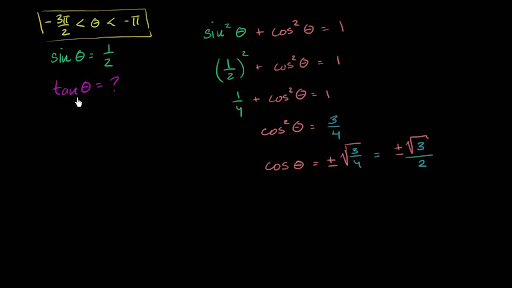 -3π/2 < θ < -π
sin θ = 1/2
tan θ = ?
sin² θ + cos² θ = 1
(1/2)² + cos² θ = 1
1/4 + cos² θ = 1
cos² θ = 3/4
cos θ = ± √(3/4) = ±√3/2